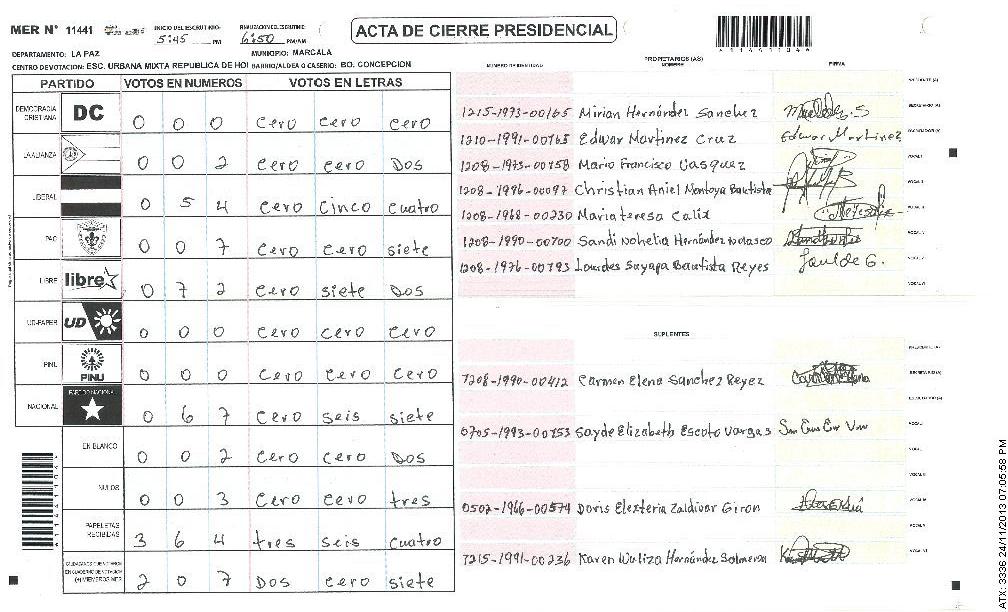 MER Nº 11441
INICIO DEL ESCRUTINIO: 5:45 PM
FINALIZACION DEL ESCRUTINIO: 6:50 PM/AM
ACTA DE CIERRE PRESIDENCIAL
DEPARTAMENTO: LA PAZ MUNICIPIO: MARCALA
CENTRO DE VOTACION: ESC. URBANA MIXTA REPUBLICA DE HOI BARRIO/ALDEA O CASERIO: BO. CONCEPCION
PARTIDO VOTOS EN NUMEROS VOTOS EN LETRAS
DEMOCRACIA CRISTIANA DC 0 0 0 cero cero cero
LA ALIANZA 0 0 2 cero cero Dos
LIBERAL 0 5 4 cero cinco cuatro
PAC 0 0 7 cero cero siete
LIBRE libre 0 7 2 cero siete Dos
UD-FAPER UD 0 0 0 cero cero cero
PINU PINU 0 0 0 cero cero cero
NACIONAL PARTIDO NACIONAL 0 6 7 cero seis siete
EN BLANCO 0 0 2 cero cero Dos
NULOS 0 0 3 cero cero tres
PAPELETAS RECIBIDAS 3 6 4 tres seis cuatro
CIUDADANOS QUE VOTARON EN CUADERNO DE VOTACION (+) MIEMBROS MER 2 0 7 Dos cero siete
NUMERO DE IDENTIDAD PROPIETARIOS (AS) NOMBRE FIRMA
1215-1973-00165 Mirian Hernández Sanchez
1210-1991-00765 Edwar Martinez Cruz Edwar Martinez
1208-1973-00758 Mario Francisco Vasquez
1208-1996-00097 Christian Aniel Montoya Bautista
1208-1968-00230 Maria teresa Calix
1208-1990-00700 Sandi Nohelia Hernández Nolasco
1208-1976-00793 Lourdes Sayapa Bautista Reyes
SUPLENTES
1208-1990-00412 Carmen Elena Sanchez Reyez
0705-1993-00153 Sayde Elizabeth Escoto Vargas
0502-1966-00574 Doris Elexteria Zaldivar Giron
1215-1991-00236 Karen Wuliza Hernández Solmeron
ATX: 3336 24/11/2013 07:05:58 PM